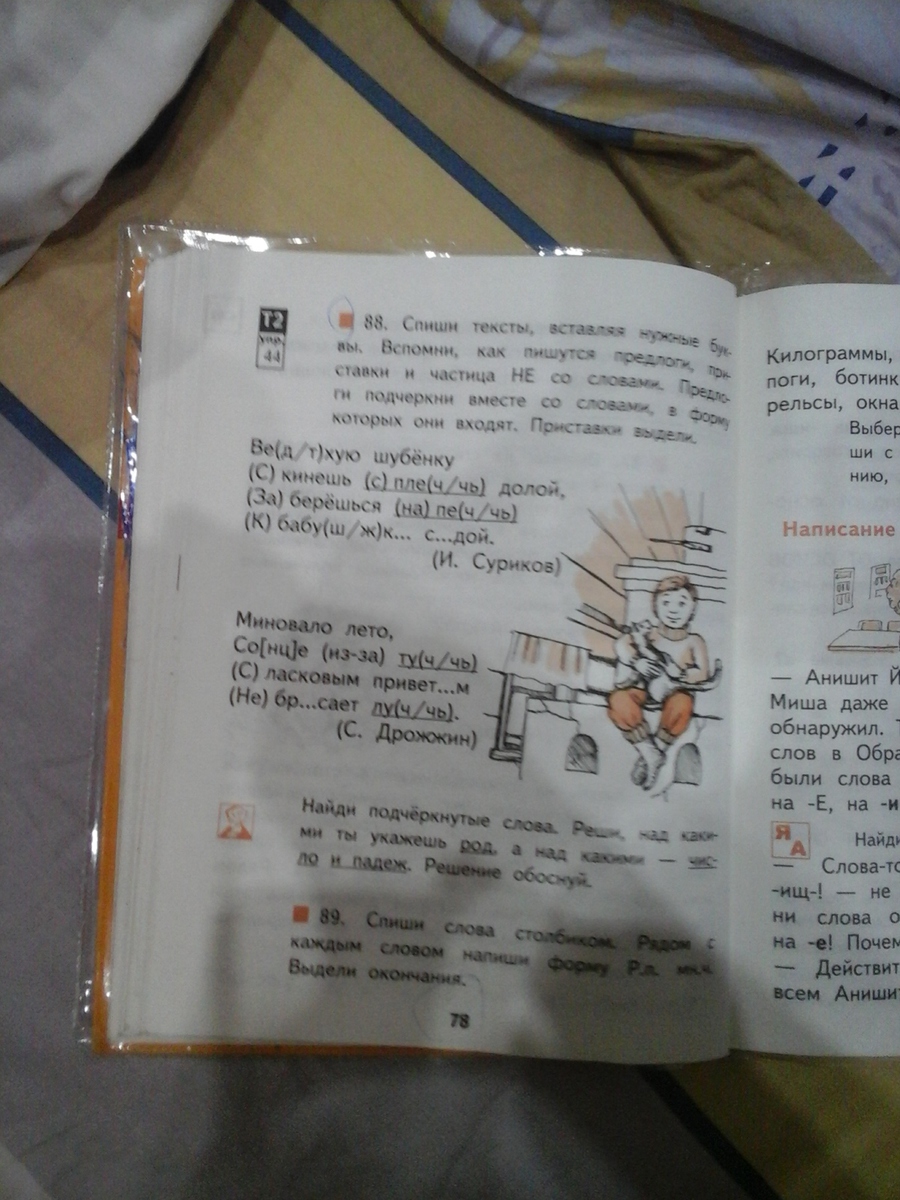 Т2
упр.
44
88. Спиши тексты, вставляя нужные бук-
вы. Вспомни, как пишутся предлоги, при-
ставки и частица НЕ со словами. Предло-
ги подчеркни вместе со словами, в форму
которых они входят. Приставки выдели.
Ве(д/т)хую шубёнку
(С) кинешь (с) пле(ч/чь) долой,
(За) берёшься (на) пе(ч/чь)
(К) бабу(ш/ж)к... с...дой.
(И. Суриков)
Миновало лето,
Со[нц]е (из-за) ту(ч/чь)
(С) ласковым привет...м
(Не) бр...сает лу(ч/чь).
(С. Дрожжин)
Найди подчёркнутые слова. Реши, над каки-
ми ты укажешь род, а над какими — чис-
ло и падеж. Решение обоснуй.
89. Спиши слова столбиком. Рядом с
каждым словом напиши форму Р.п. мн.ч.
Выдели окончания.
78
Килограммы,
поги, ботинк
рельсы, окна
Выбер
ши с
нию,
Написание
— Анишит Й
Миша даже
обнаружил.
слов в Обра
были слова
на -Е, на -и
Я
А
Найди
— Слова-то
-ищ-! — не
ни слова о
на -е! Почем
— Действит
всем Анишит